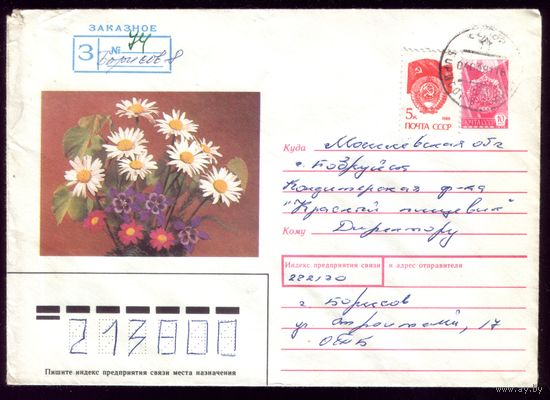 ЗАКАЗНОЕ
З №
74
Борисов 8
5к
1988
ПОЧТА СССР
10
Куда Могилевская обл
г. Бобруйск
Кондитерская ф-ка
"Красный пищевик"
Кому Директору
Индекс предприятия связи и адрес отправителя
222120
г Борисов
ул Строителей, 17
213800
Пишите индекс предприятия связи места назначения
www.ay.by